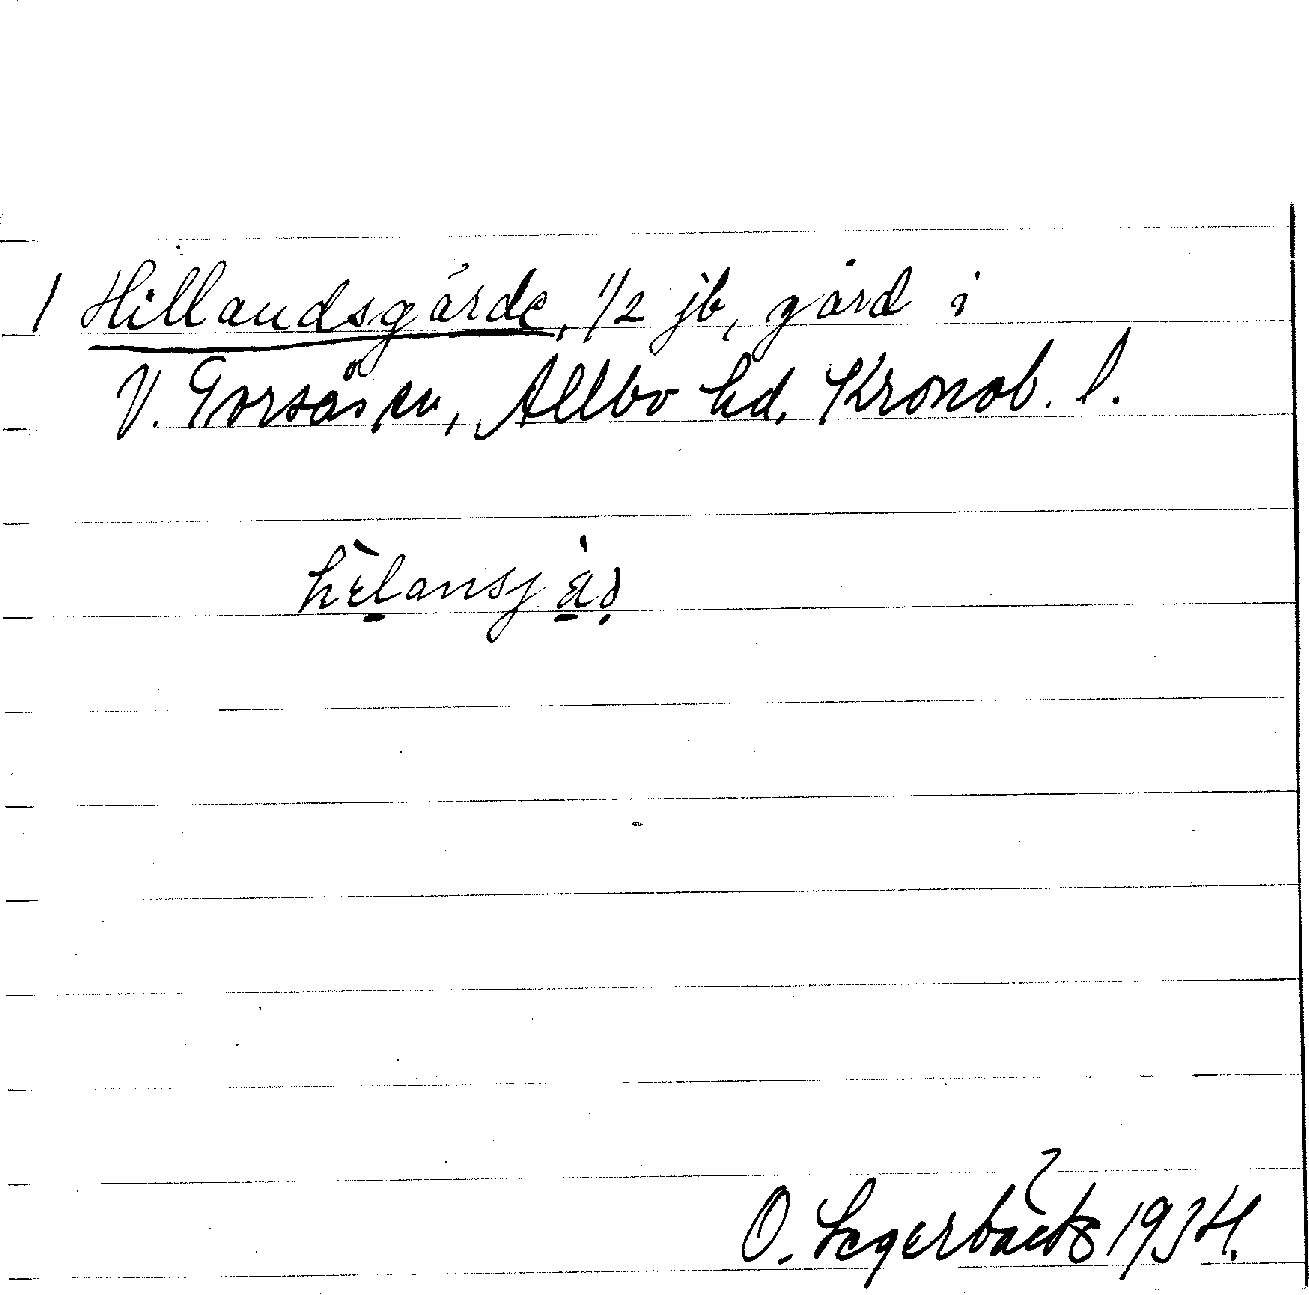 1 Hillandsgärde, 1/2 jb, gård i
V. Torsås sn, Allbo hd. Kronob. l.
O. Lagerbäck 1934.